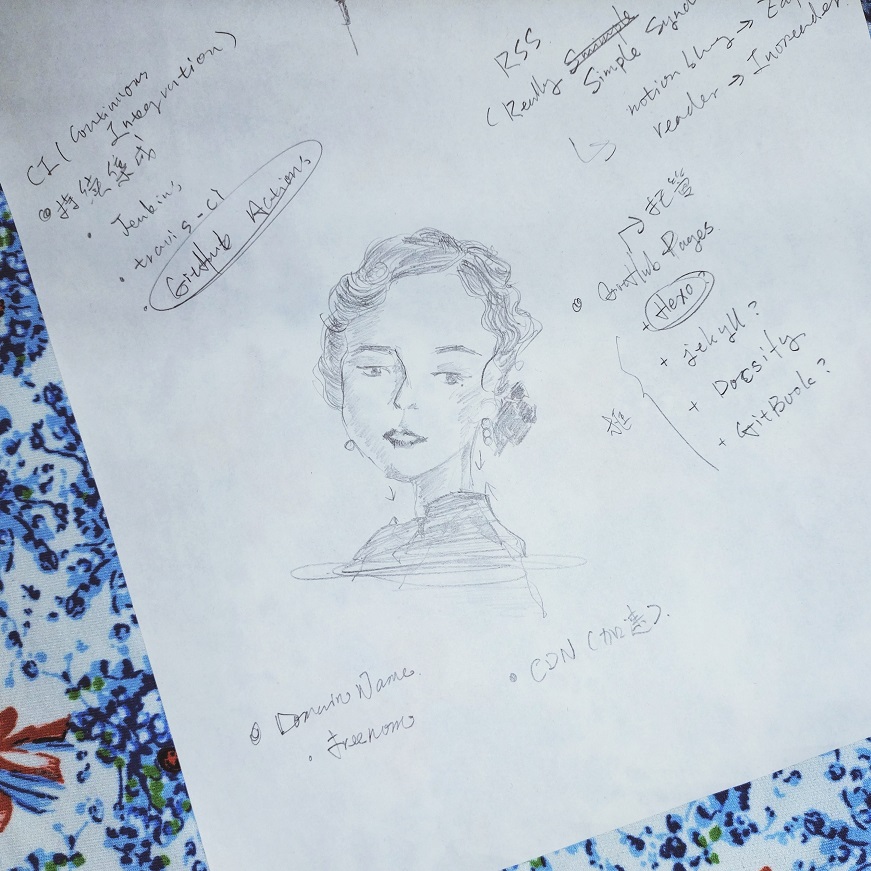 CI (Continuous
Integration)
持续集成
Jenkins
travis-ci
GitHub Actions
RSS
(Really Simple
notion blog →
reader → Inoreader
托管
GitHub Pages
+ Hexo?
+ jekyll?
+ Docsify
+ GitBook?
Domain Name
freenom
CDN (加速)